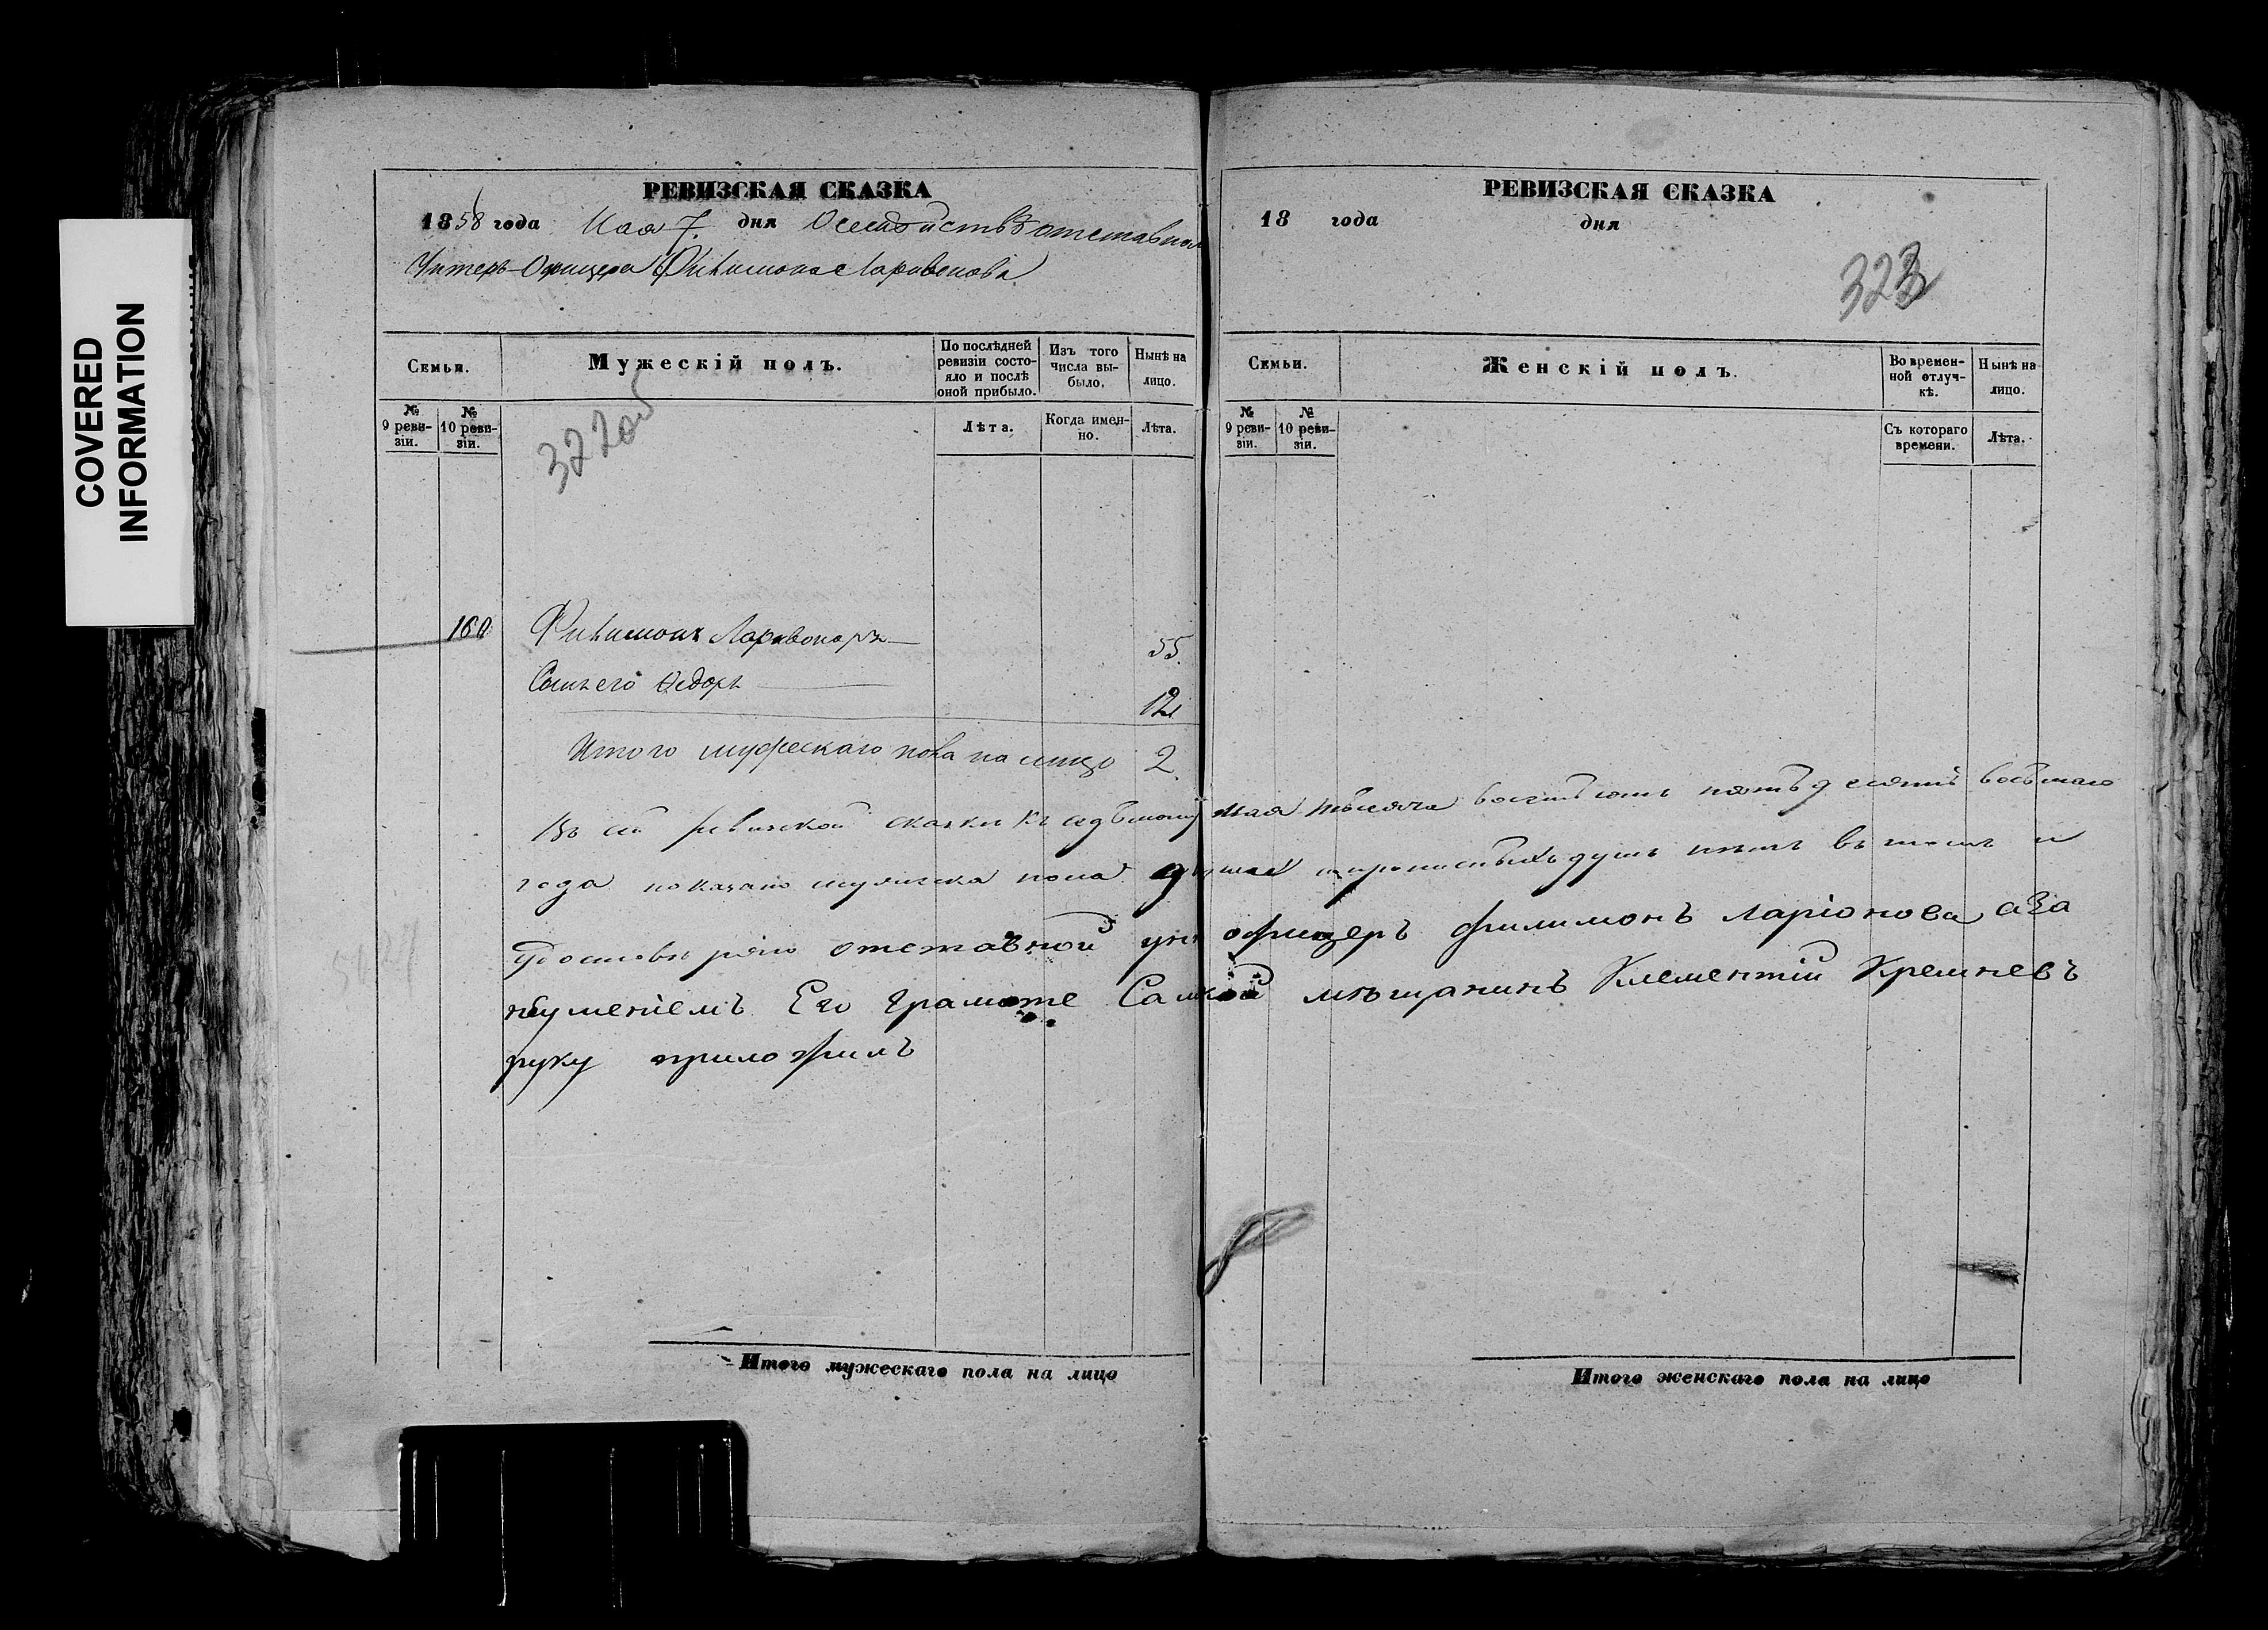 COVERED
INFORMATION
РЕВИЗСКАЯ СКАЗКА
1858 года Мая 7. дня О семействѣ отставнаго
Унтеръ-Офицера Филимона Ларивонова
Семьи.
Мужескій полъ.
По послѣдней ревизіи состояло и послѣ оной прибыло.
Изъ того числа выбыло.
Нынѣ на лицо.
№ 9 ревизіи.
№ 10 ревизіи.
322об
Лѣта.
Когда именно.
Лѣта.
160 Филимонъ Ларивоновъ 55.
Сынъ его Ѳедоръ 12
Итого мужескаго пола на лицо 2.
РЕВИЗСКАЯ СКАЗКА
18 года дня
323
Семьи.
Женскій полъ.
Во временной отлучкѣ.
Нынѣ на лицо.
№ 9 ревизіи.
№ 10 ревизіи.
Съ котораго времени.
Лѣта.
Въ сей ревизской сказки къ седьмому мая тысяча восемьсотъ пятьдесятъ восьмаго
года показано мужеска пола душъ и прописныхъ душъ нѣтъ въ томъ и
удостовѣряю отставной ун офицеръ филимонъ ларіонова аза
неуменіемъ Его грамоте мѣщанинъ Клементій Кремневъ
руку приложилъ
Итого мужескаго пола на лицо
Итого женскаго пола на лицо